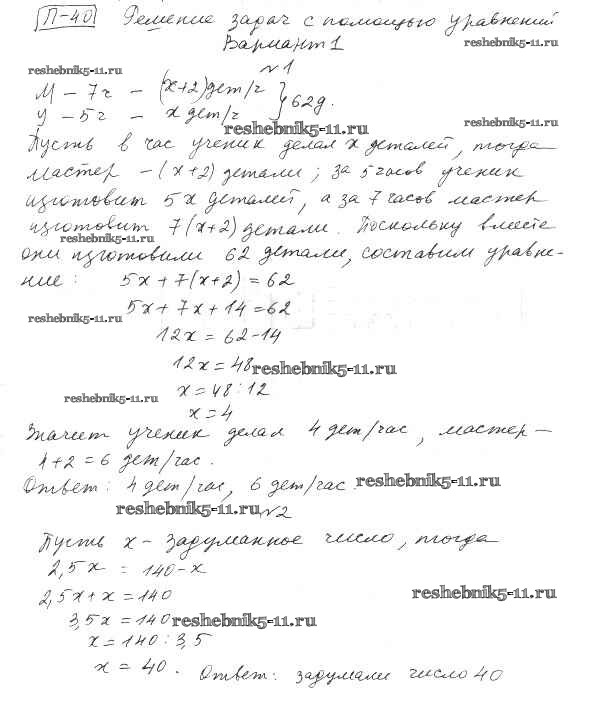 П-40 Решение задач с помощью уравнений
Вариант 1
reshebnik5-11.ru
reshebnik5-11.ru
№1
М - 7ч - (x+2) дет/ч
У - 5ч - x дет/ч } 62д.
reshebnik5-11.ru
reshebnik5-11.ru
Пусть в час ученик делал x деталей, тогда
мастер - (x+2) детали; за 5 часов ученик
изготовит 5x деталей, а за 7 часов мастер
изготовит 7(x+2) детали. Поскольку вместе
reshebnik5-11.ru
они изготовили 62 детали, составим уравне-
ние: 5x + 7(x+2) = 62
5x + 7x + 14 = 62
reshebnik5-11.ru
12x = 62-14
12x = 48
reshebnik5-11.ru
x = 48 : 12
reshebnik5-11.ru
x = 4
Значит ученик делал 4 дет/час, мастер -
4+2 = 6 дет/час.
Ответ: 4 дет/час, 6 дет/час.
reshebnik5-11.ru
reshebnik5-11.ru
№2
Пусть x - задуманное число, тогда
2,5x = 140-x
2,5x+x = 140
reshebnik5-11.ru
3,5x = 140
reshebnik5-11.ru
x = 140 : 3,5
x = 40. Ответ: задумали число 40